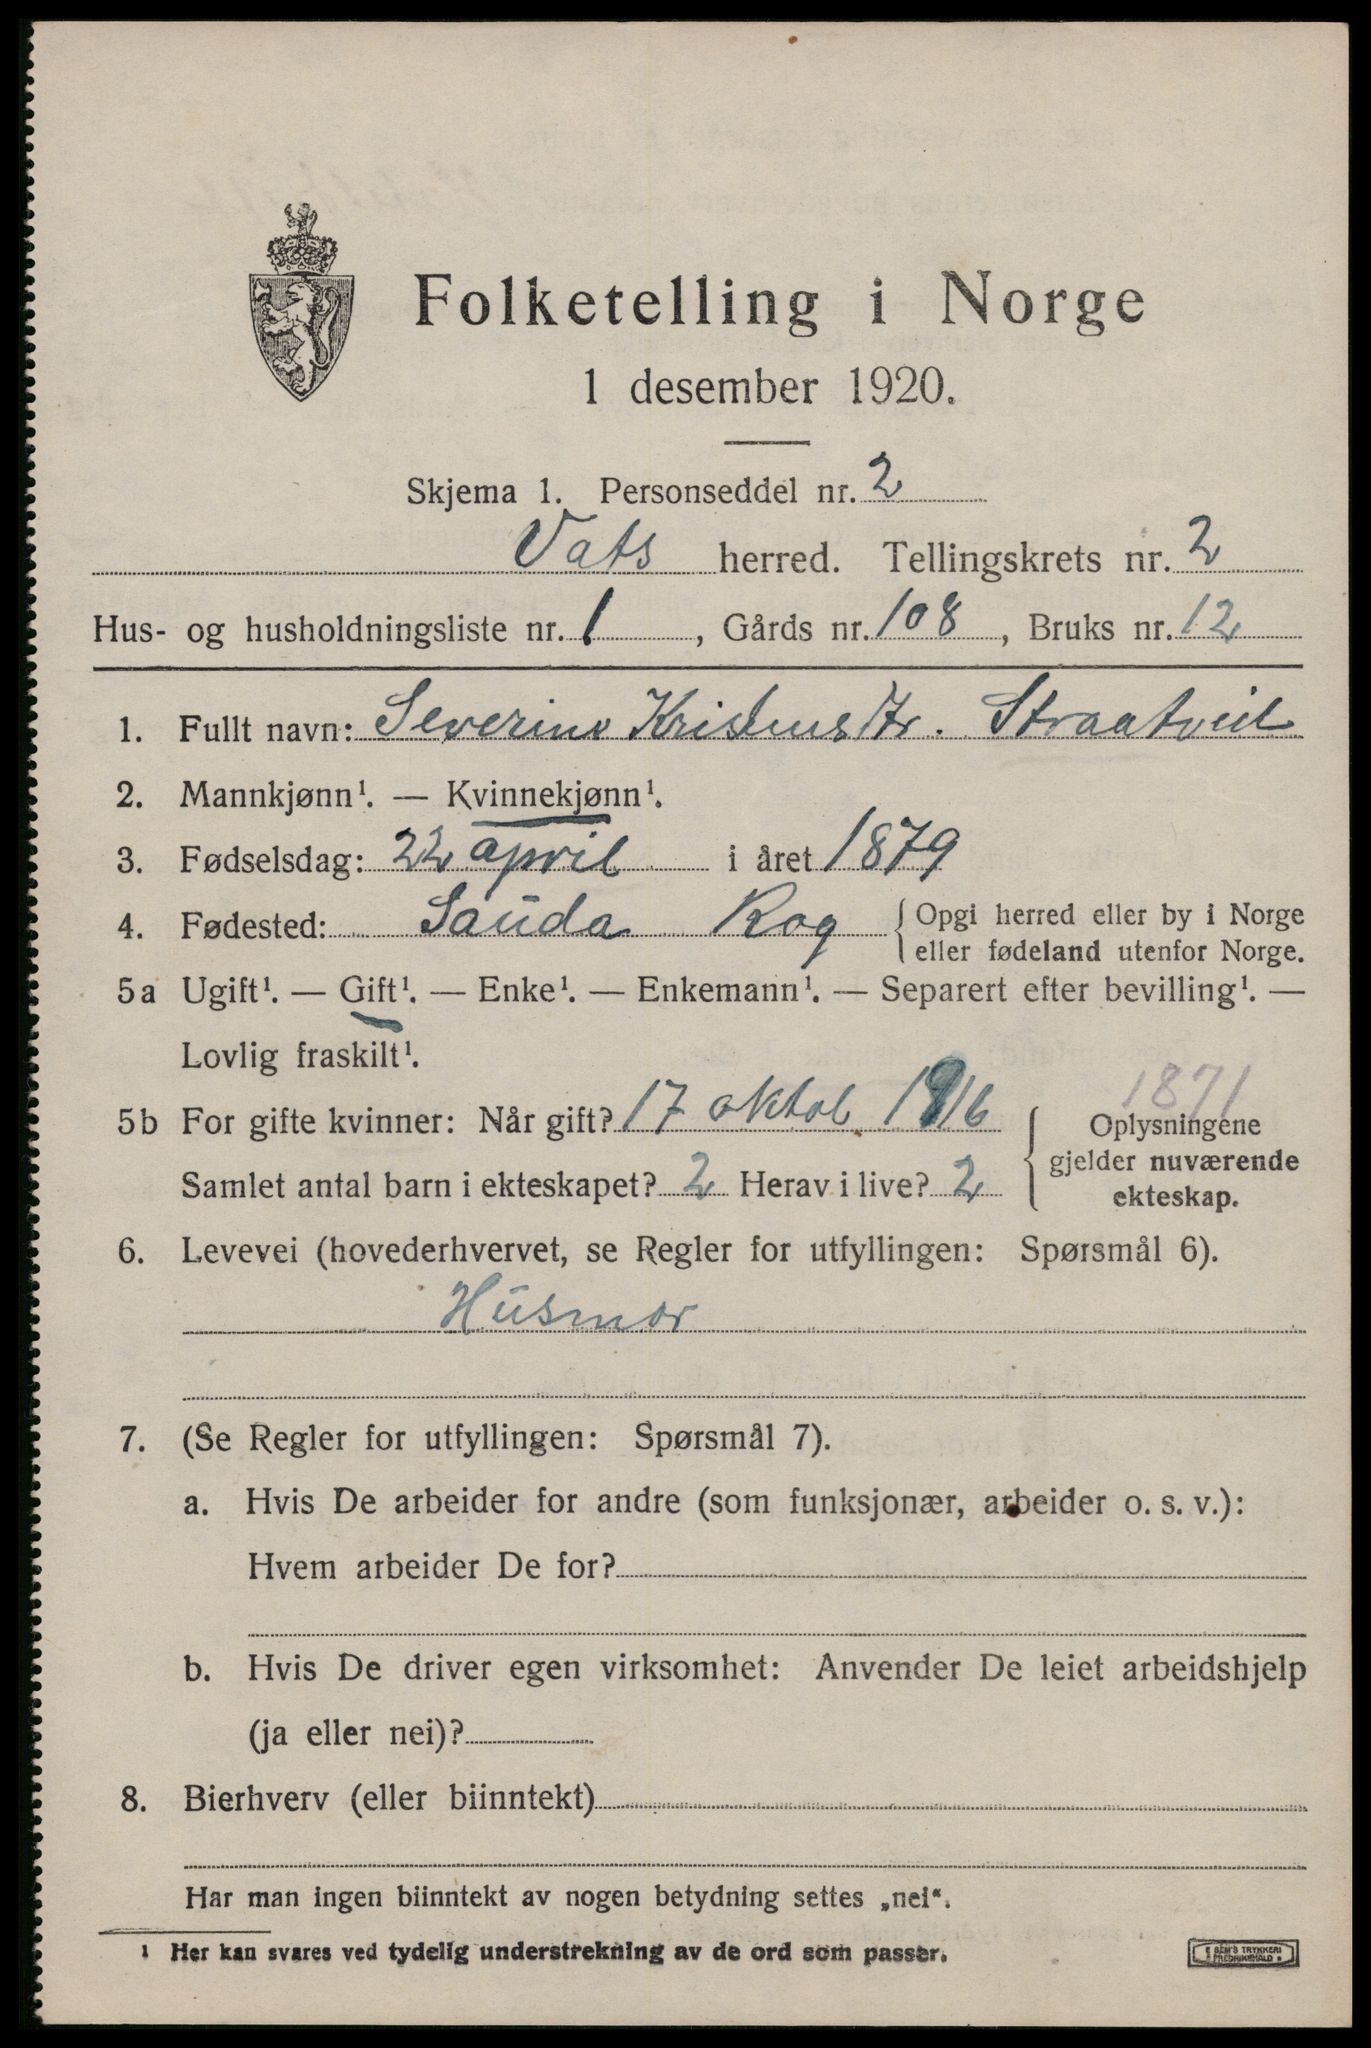 Folketelling i Norge
1 desember 1920.
Skjema 1. Personseddel nr. 2
Vats herred. Tellingskrets nr. 2
Hus- og husholdningsliste nr. 1, Gårds nr. 108, Bruks nr. 12
1. Fullt navn: Severine Straatveit
2. Mannkjønn¹. — Kvinnekjønn¹.
3. Fødselsdag: 22 april i året 1879
4. Fødested: Sauda Rog { Opgi herred eller by i Norge
eller fødeland utenfor Norge.
5a Ugift¹. — Gift¹. — Enke¹. — Enkemann¹. — Separert efter bevilling¹. —
Lovlig fraskilt¹.
1871
5b For gifte kvinner: Når gift? 17 oktob. 1916 { Oplysningene
gjelder nuværende
ekteskap.
Samlet antal barn i ekteskapet? 2 Herav i live? 2
6. Levevei (hovederhvervet, se Regler for utfyllingen: Spørsmål 6).
Husmor
7. (Se Regler for utfyllingen: Spørsmål 7).
a. Hvis De arbeider for andre (som funksjonær, arbeider o. s. v.):
Hvem arbeider De for?
b. Hvis De driver egen virksomhet: Anvender De leiet arbeidshjelp
(ja eller nei)?
8. Bierhverv (eller biinntekt)
Har man ingen biinntekt av nogen betydning settes „nei“.
¹ Her kan svares ved tydelig understrekning av de ord som passer.
SEM'S TRYKKERI
FREDRIKSHALD